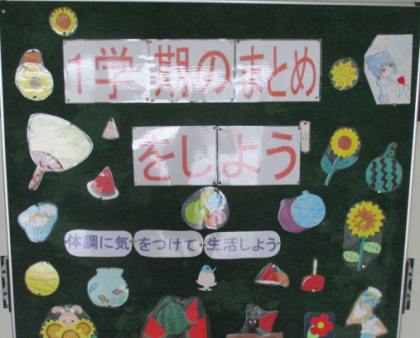 1学期のまとめ
をしよう
体調に気をつけて生活しよう